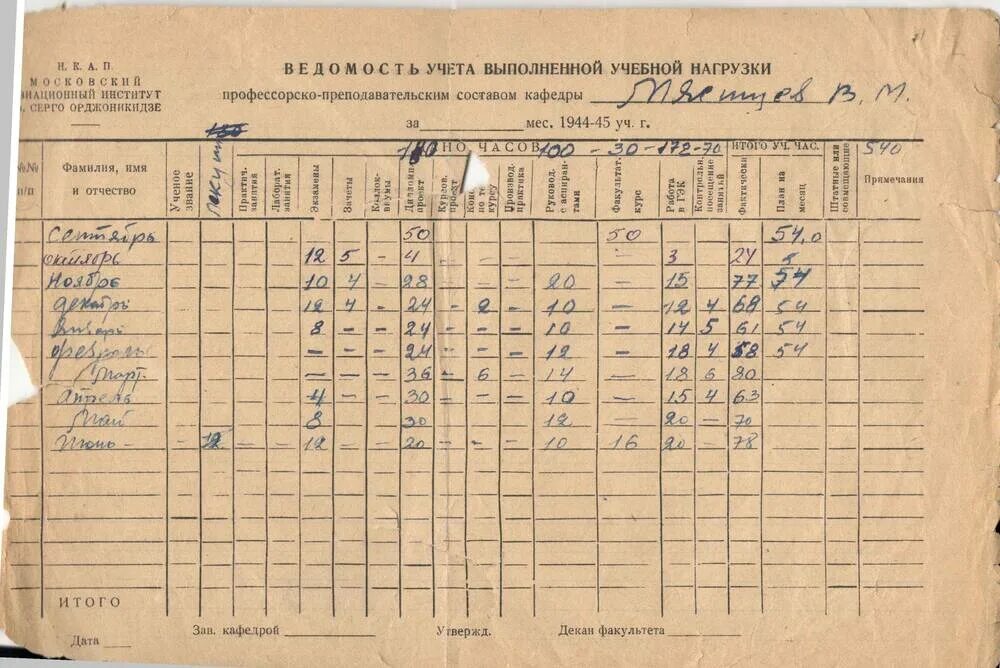 Н. К. А. П.
МОСКОВСКИЙ
ИАЦИОННЫЙ ИНСТИТУТ
СЕРГО ОРДЖОНИКИДЗЕ
ВЕДОМОСТЬ УЧЕТА ВЫПОЛНЕННОЙ УЧЕБНОЙ НАГРУЗКИ
профессорско-преподавательским составом кафедры Мясищев В. М.
за мес. 1944-45 уч. г.
НО ЧАСОВ 100 - 30 - 172 - 70 ИТОГО УЧ. ЧАС. 540
№№ п/п Фамилия, имя и отчество Ученое звание Практич. занятия Лаборат. занятия Экзамены Зачеты Коллоквиумы Дипломн. проект Курсов. проект Кон по те курсу Производ. практика Руковод. с аспирантами Факультат. курс Работа в ГЭК Контрольн. посещение занятий Фактически План на месяц Штатные или совмещающие Примечания
сентябрь 50 50 54,0
октябрь 12 5 - 4 3 24
Ноябрь 10 4 - 28 - 20 - 15 77 54
декабрь 12 4 - 24 - 2 - 10 - 12 4 68 54
Январь 8 - - 24 - 10 - 14 5 61 54
февраль - - - 24 - 12 - 18 4 58 54
Март - - - 36 - 6 - 14 - 18 6 80
Апрель 4 - - 30 - - - 10 - 15 4 63
Май 8 30 12 - 20 - 70
Июнь - - 12 - - 12 - - 20 - - - 10 16 20 - 78
ИТОГО
Дата Зав. кафедрой Утвержд. Декан факультета